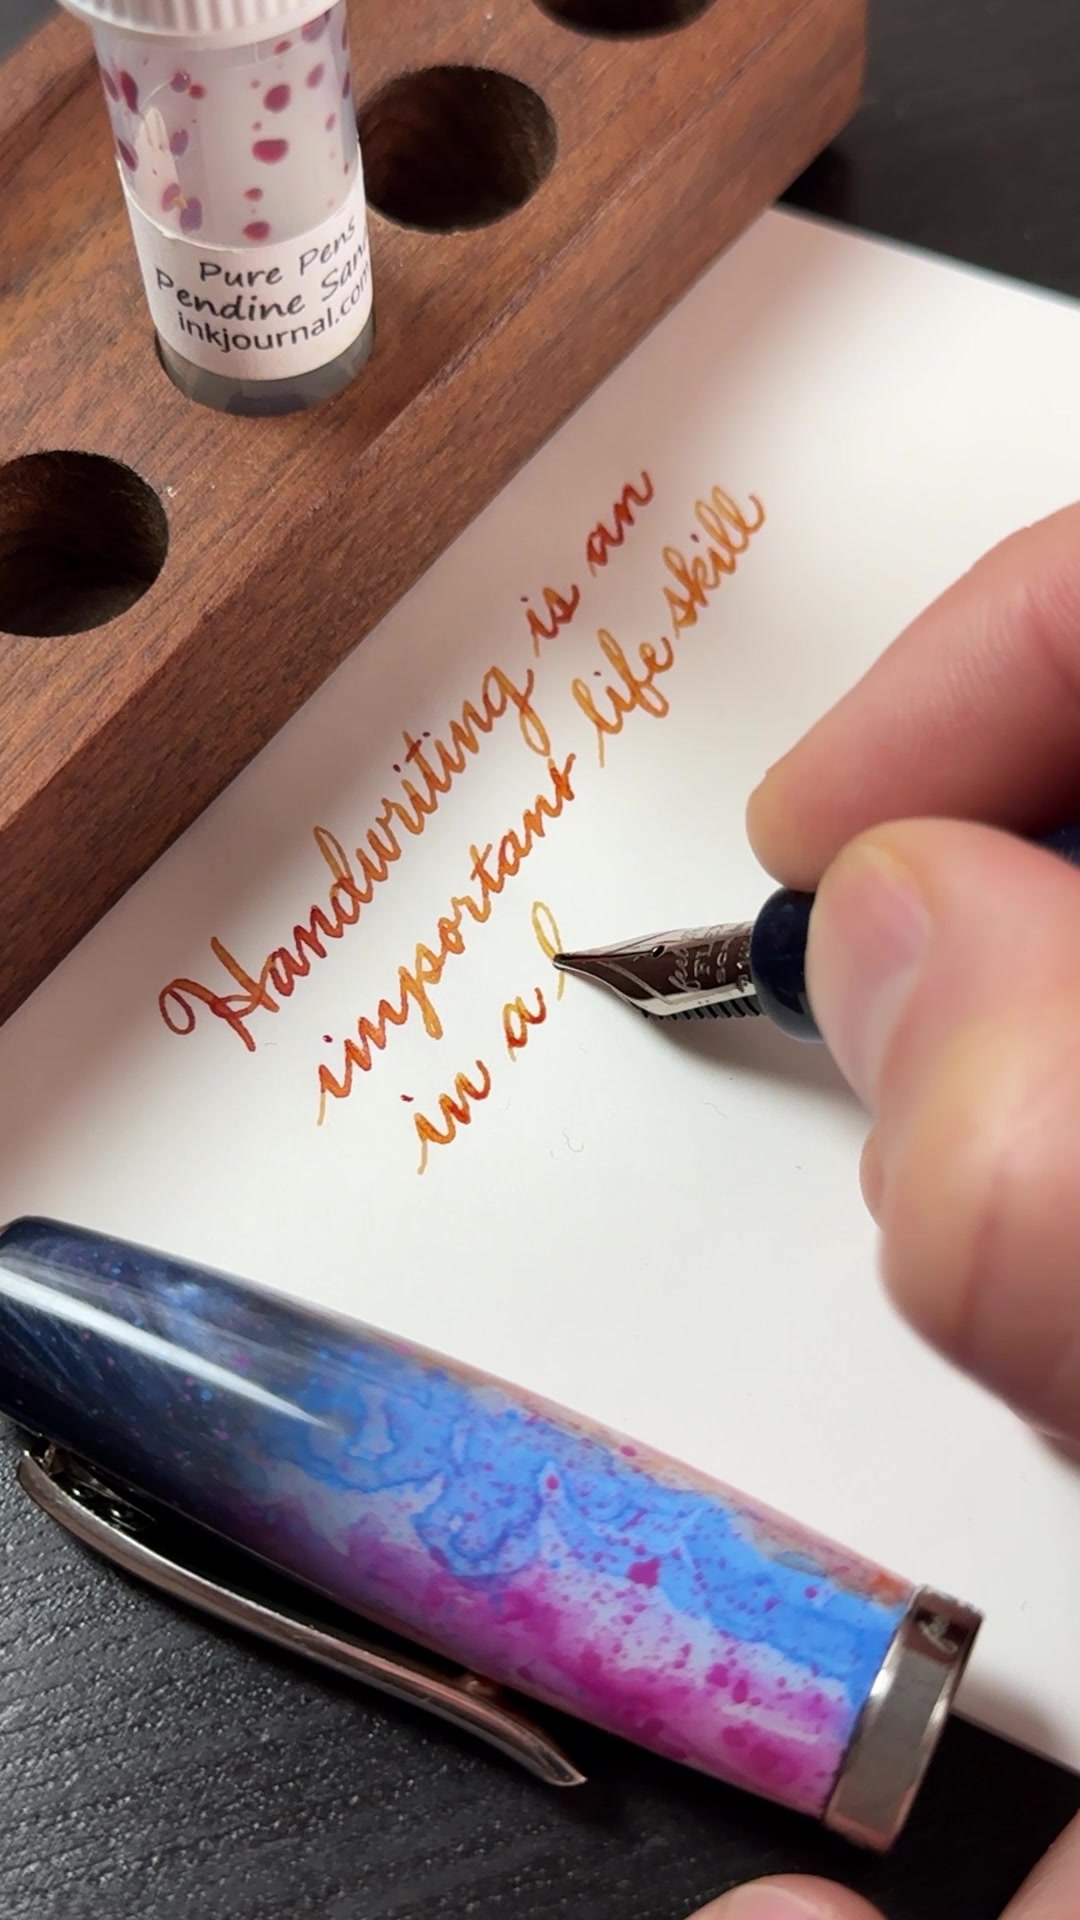 Pure Pens
Pendine San
inkjournal.com
Handwriting is an
important life skill
in a l